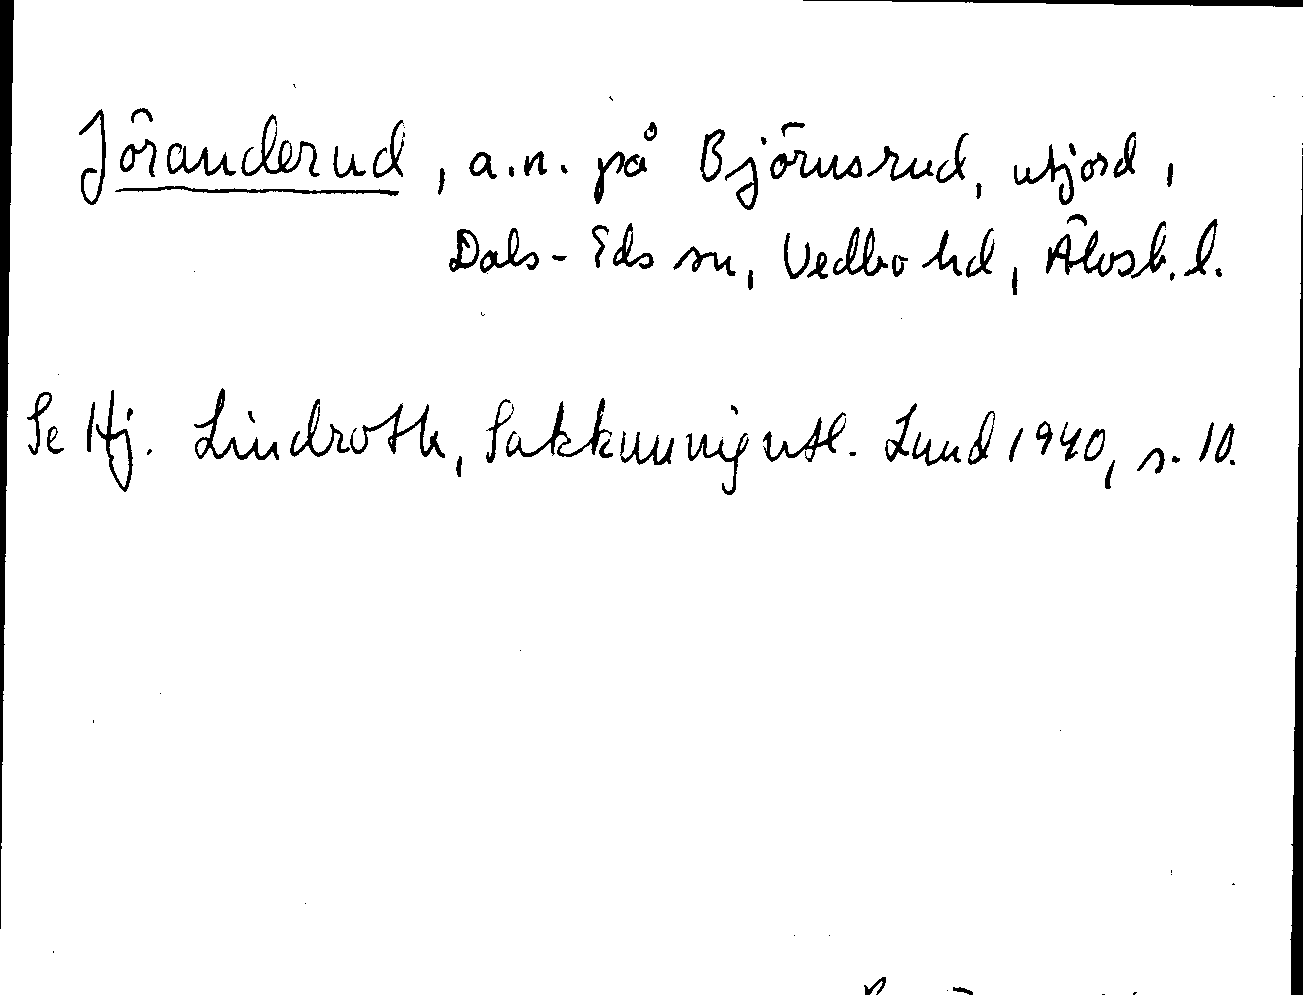 Jöranderud, a.n. på Björnsrud, utjord,
Dals-Eds sn, Vedbo hd, Älvsb. l.
Se Hj. Lindroth, Sakkunnigutl. Lund 1940, s. 10.